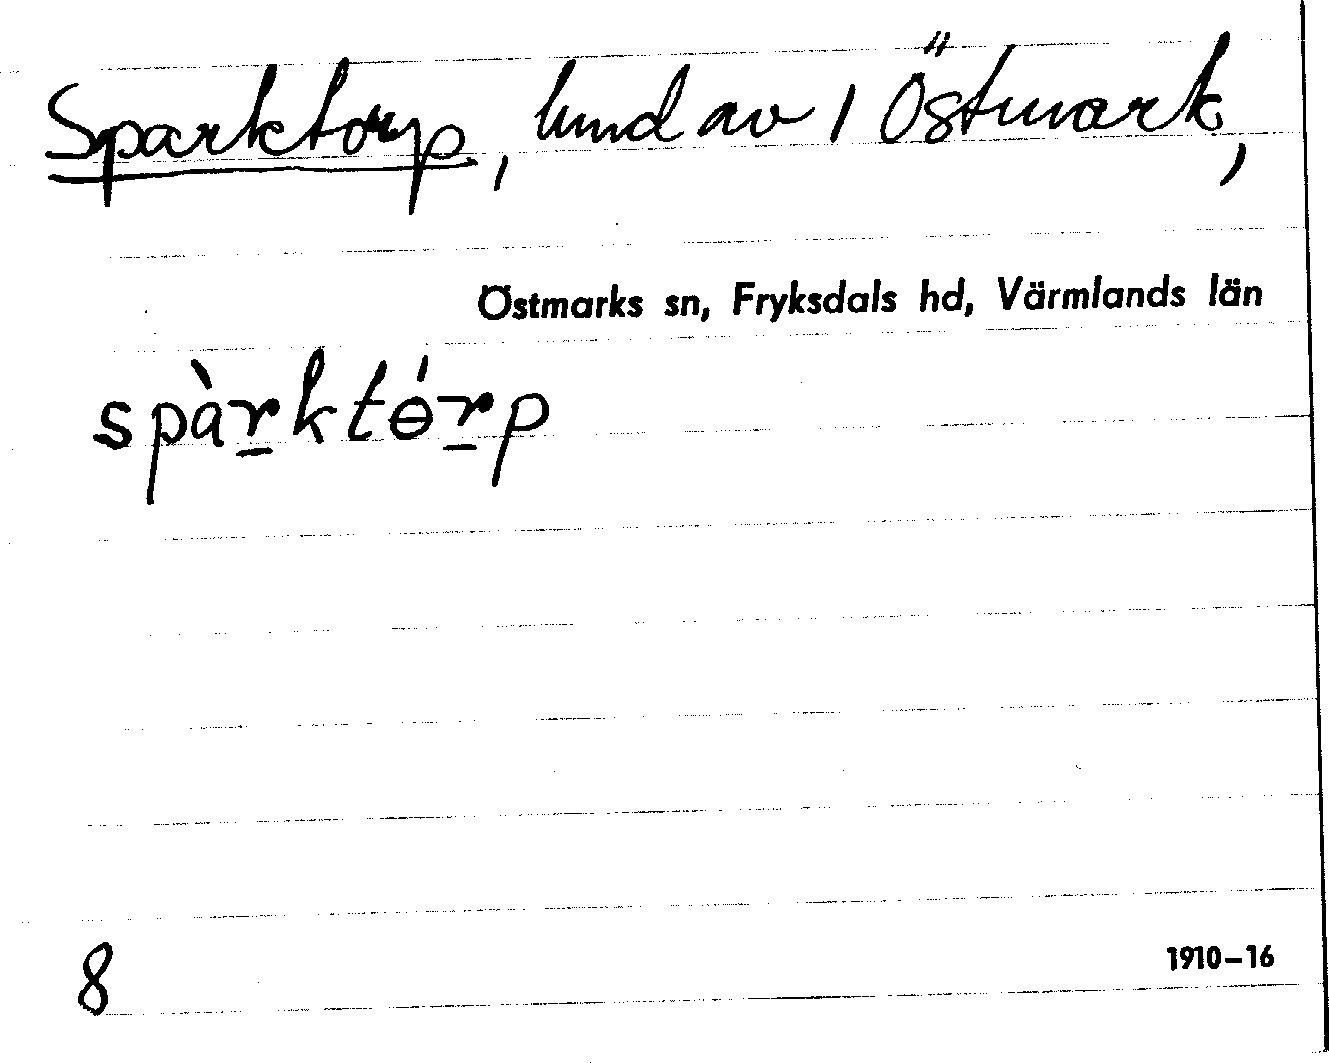 Sparktorp, hmd av 1 Östmark,
Östmarks sn, Fryksdals hd, Värmlands län
spàr̲ktɵ́r̲p
8
1910–16